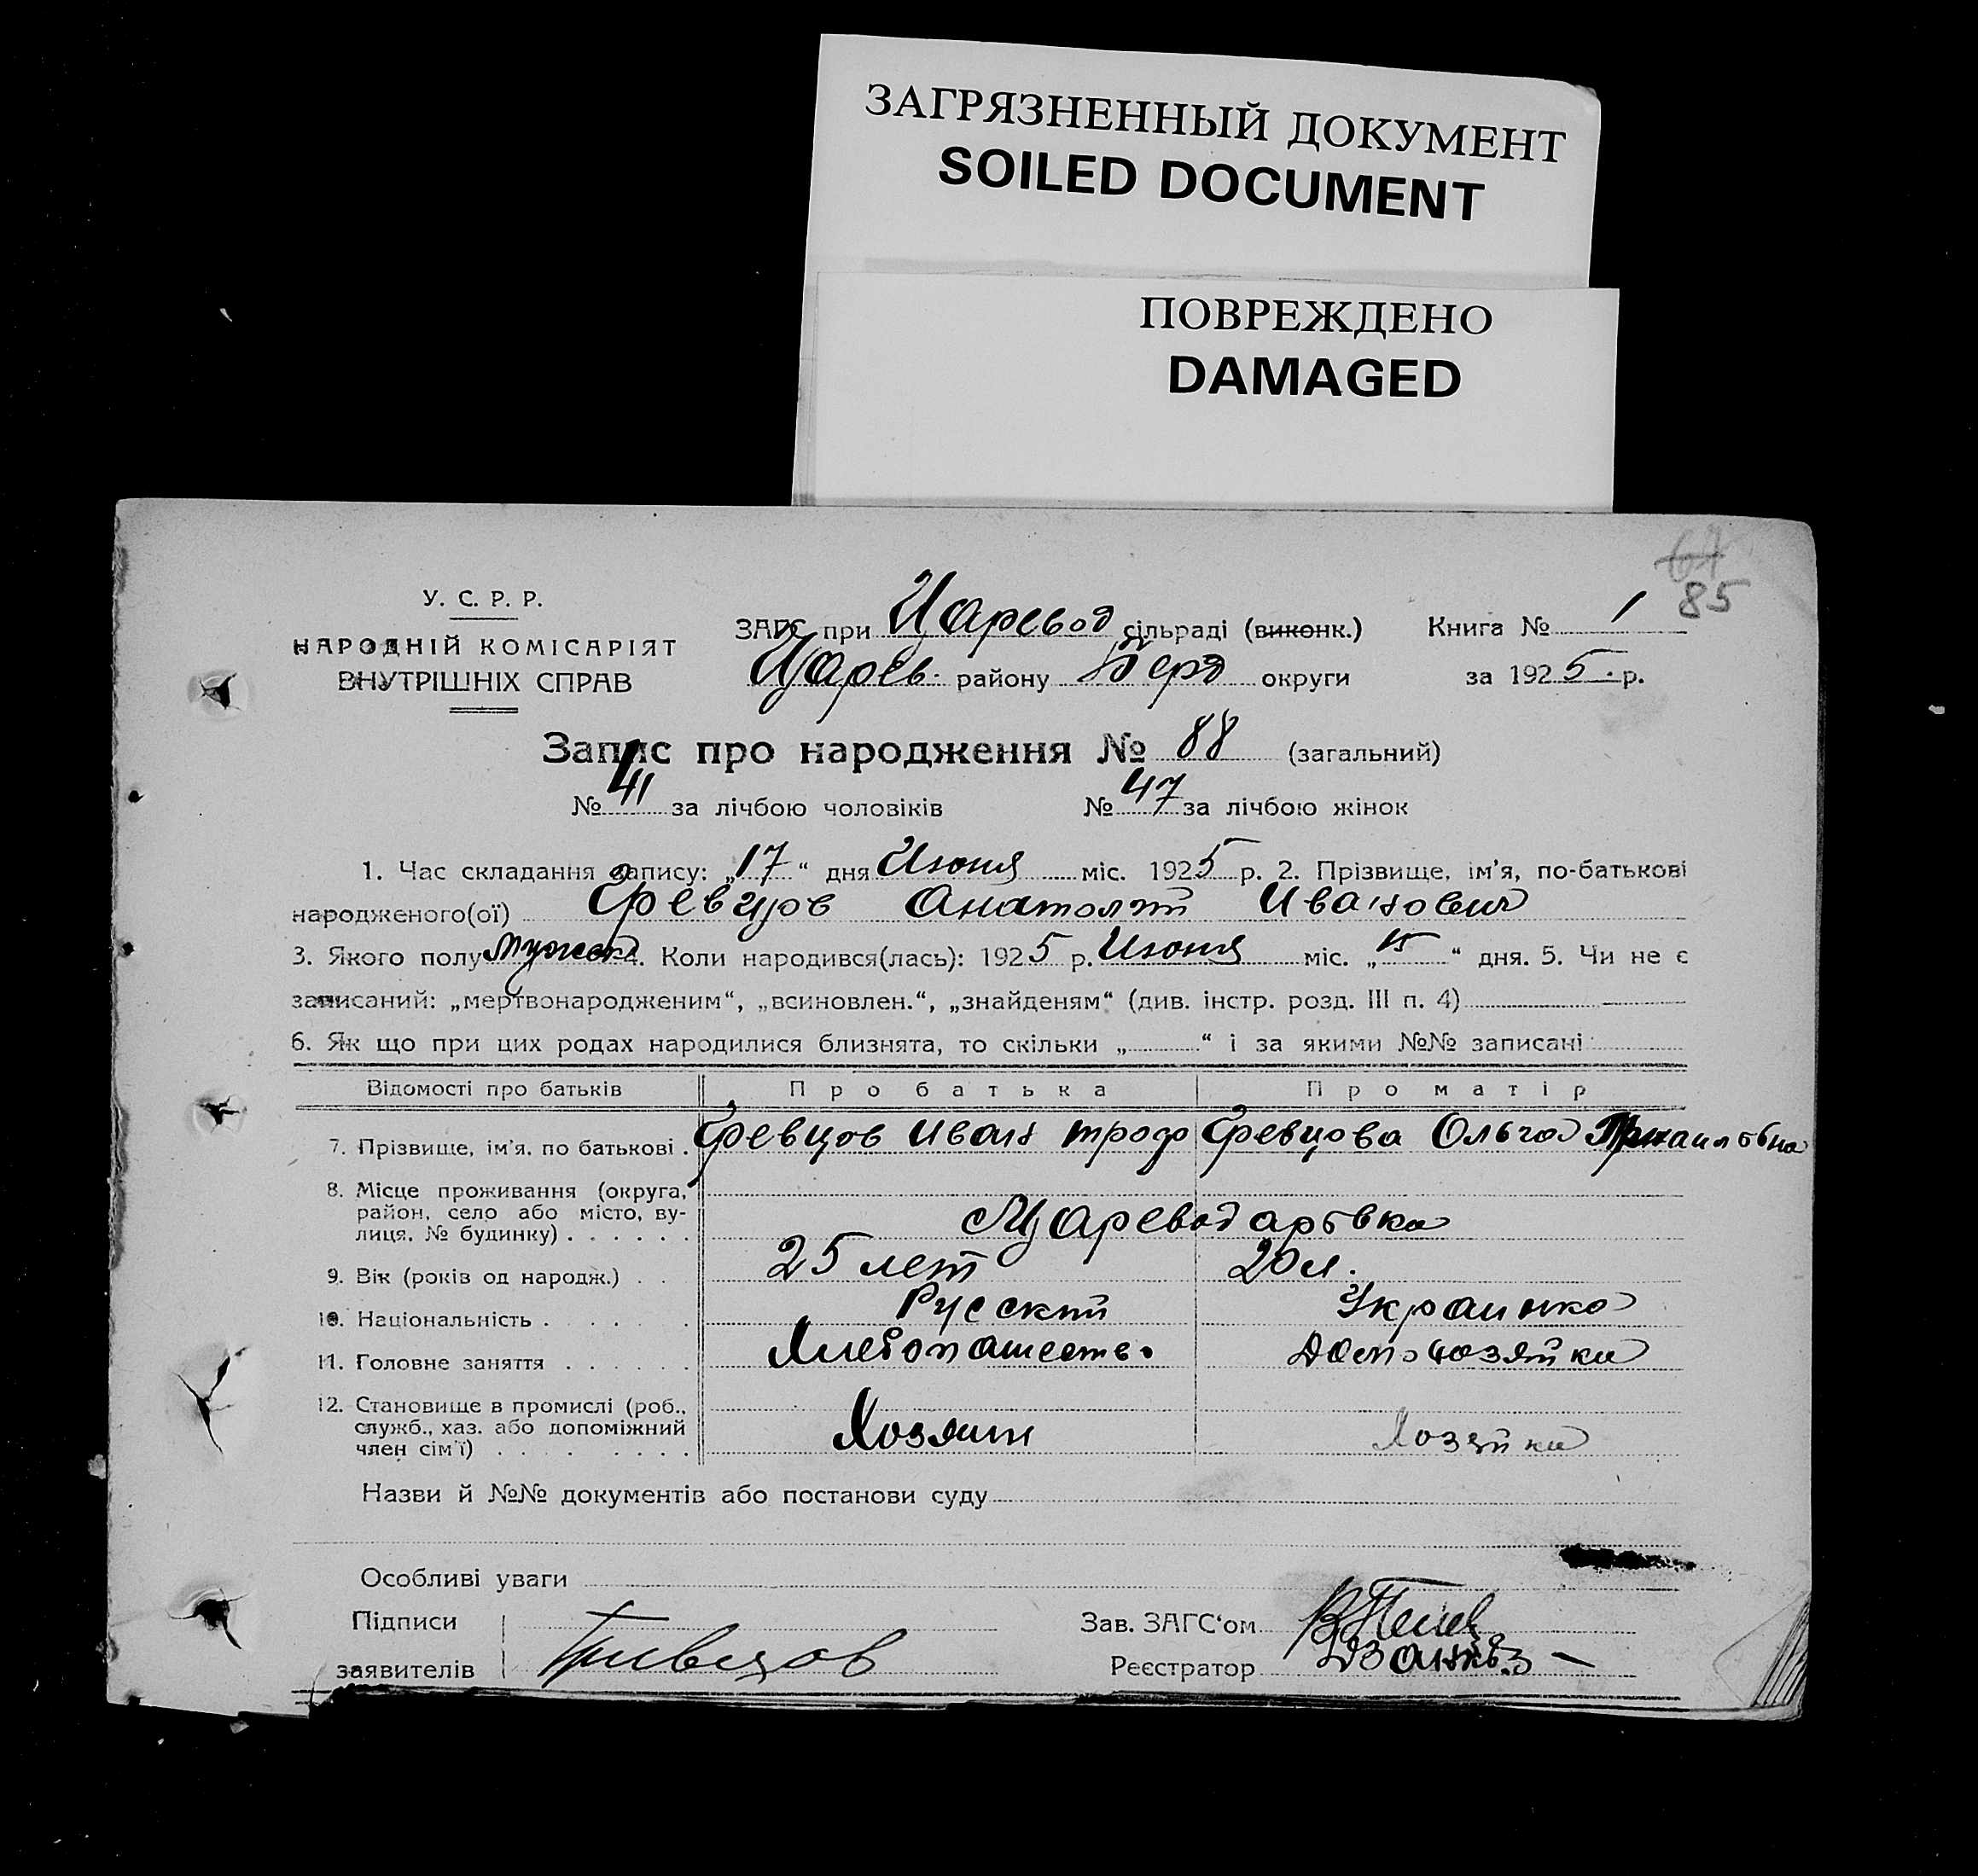 ЗАГРЯЗНЕННЫЙ ДОКУМЕНТ
SOILED DOCUMENT
ПОВРЕЖДЕНО
DAMAGED
67
85
У. С. Р. Р.
НАРОДНІЙ КОМІСАРІЯТ
ВНУТРІШНІХ СПРАВ
ЗАГС при Царевод сільраді (виконк.) Книга № 1
Царев. району Берд округи за 1925 р.
Запис про народження № 88 (загальний)
№ 41 за лічбою чоловіків № 47 за лічбою жінок
1. Час складання запису: „17“ дня Июня міс. 1925 р. 2. Прізвище, ім'я, по-батькові
народженого(ої) Анатолий Иванович
3. Якого полу мужск 4. Коли народився(лась): 1925 р. Июня міс. „15“ дня. 5. Чи не є
записаний: „мертвонародженим“, „всиновлен.“, „знайденям“ (див. інстр. розд. III п. 4)
6. Як що при цих родах народилися близнята, то скільки „ “ і за якими №№ записані
Відомості про батьків Про батька Про матір
7. Прізвище, ім'я, по батькові . Иван Ольга
8. Місце проживання (округа,
район, село або місто, ву-
лиця, № будинку) . . . . . . Цареводаровка
9. Вік (років од народж.) . . 25 лет 20 л.
10. Національність . . . . . . Русский Украинка
11. Головне заняття . . . . . . Хлебопашество Домохозяйка
12. Становище в промислі (роб.,
служб., хаз. або допоміжний
член сім'ї) . . . . . . . . Хозяин Хозяйка
Назви й №№ документів або постанови суду
Особливі уваги
Підписи Зав. ЗАГС'ом
заявителів Реєстратор